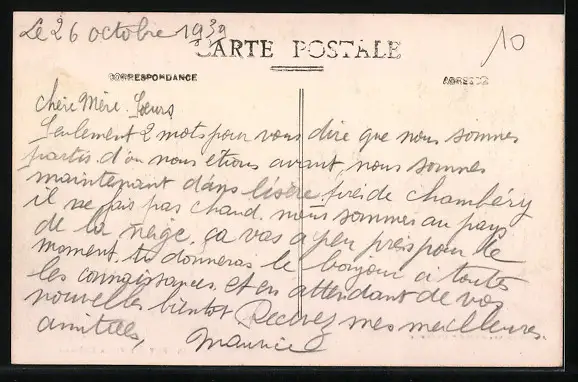 Le 26 octobre 1939
10
CARTE POSTALE
CORRESPONDANCE
ADRESSE
Chère Mère. Sœurs
Seulement 2 mots pour vous dire que nous sommes
partis d'ou nous etions avant, nous sommes
maintenant dans lisère près de Chambéry
il ne fais pas chaud. nous sommes au pays
de la neige. ça vas a peu pres pour le
moment. tu donneras le bonjour a toutes
les connaissances et en attendant de vos
nouvelles bientot Recevez mes meilleures.
amitiées,
Maurice